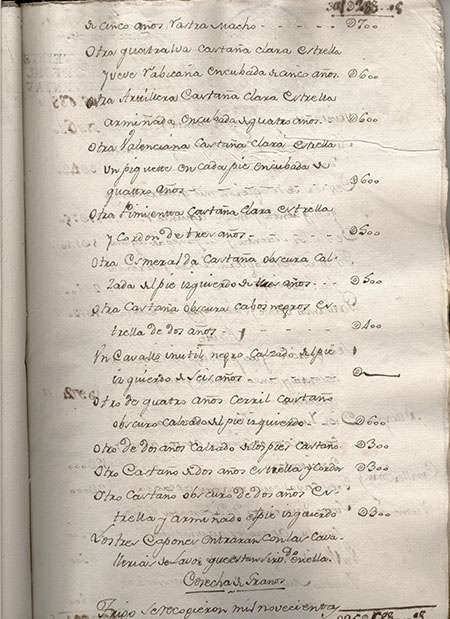 de cinco años rastra Macho - - - - D700
Otra quatralva Castaña clara estrella
y veve rabicana encubada de cinco años. D600
Otra Artillera Castaña clara estrella
armiñada encubada de quatro años. D600
Otra Valenciana Castaña clara estrella
un piquette en cada pie encubada de
quattro Años - - - - - - D600
Otra Pimienta Castaña clara estrella
y Cordon de tres años - - - - D500
Otra Esmeralda Castaña obscura Cal-
zada del pie izquierdo de tres años - - D500
Otra Castaña obscura cabos negros es-
trella de dos años - - - - - D400
Un Cavallo inutil negro Calzado del pie
izquierdo de seis años - - - D
Otro de quatro años cerril Castaño
obscuro Calzado del pie izquierdo. D600
Otro de dos años Calzado de los pies Castaño. D300
Otro Castaño de dos años estrella y Cordon D300
Otro Castaño obscuro de dos años es-
trella y armiñado el pie izquierdo D300
Los tres Capones entraran con las Cava-
llerias de lavor que estan sirdo. en ella.
Cosecha de Granos
Trigo Se recogieron mil novecientas